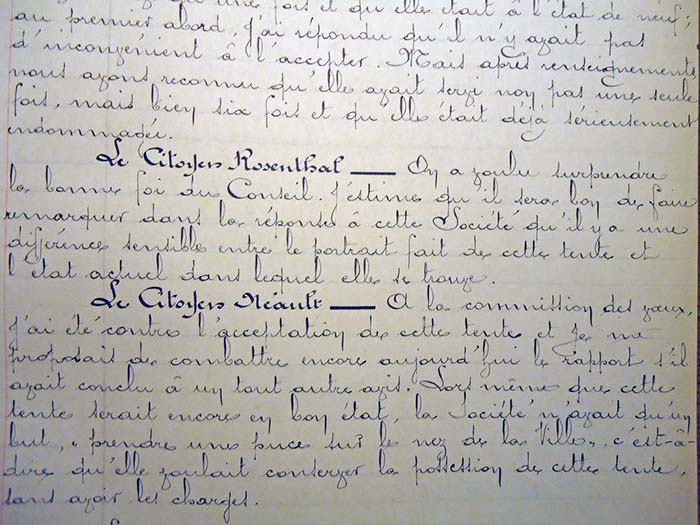 qu'une fois et qu'elle était à l'état de neuf,
au premier abord, j'ai répondu qu'il n'y avait pas
d'inconvénient à l'accepter. Mais après renseignements
nous avons reconnu qu'elle avait servi non pas une seule
fois, mais bien six fois et qu'elle était déjà sérieusement
endommagée.
Le Citoyen Rosenthal — On a voulu surprendre
la bonne foi du Conseil. J'estime qu'il sera bon de faire
remarquer dans la réponse à cette Société qu'il y a une
différence sensible entre le portrait fait de cette tente et
l'état actuel dans lequel elle se trouve.
Le Citoyen Néault — A la commission des vœux,
j'ai été contre l'acceptation de cette tente et je me
proposais de combattre encore aujourd'hui le rapport s'il
avait conclu à un tout autre avis. Lors même que cette
tente serait encore en bon état, la Société n'avait qu'un
but, « prendre une puce sur le nez de la Ville », c'est-à-
dire qu'elle voulait conserver la possession de cette tente,
sans avoir les charges.